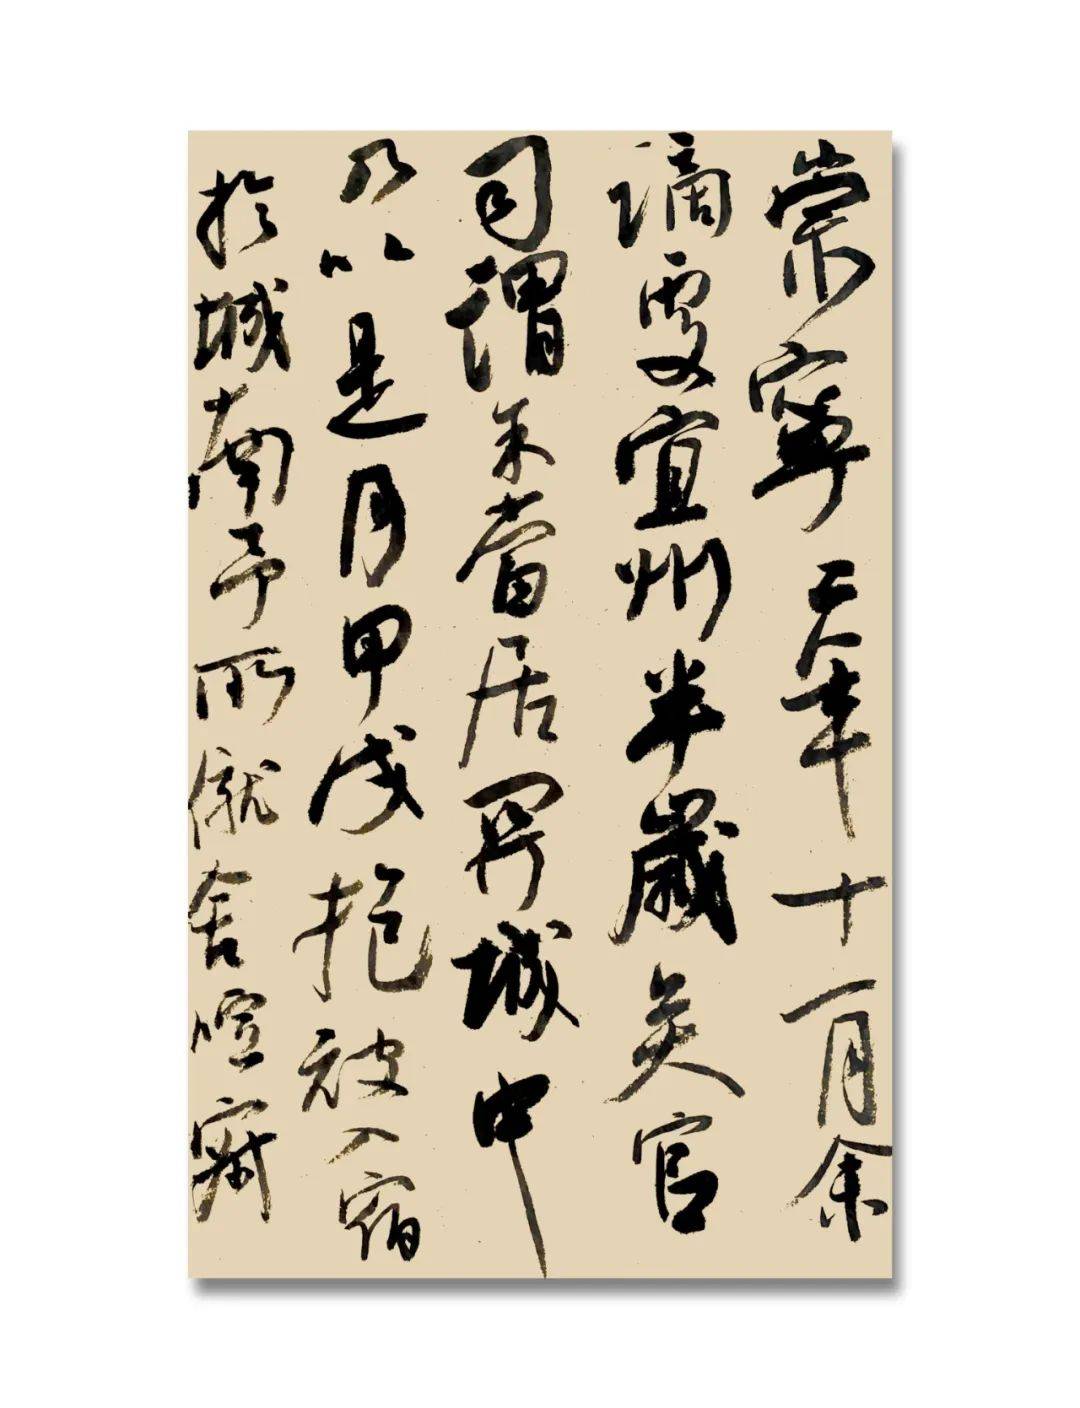 崇寧三年十一月余
謫處宜州半歲矣官
司謂未當居關城中
乃以是月甲戌抱被入宿
於城南予所僦舍喧寂